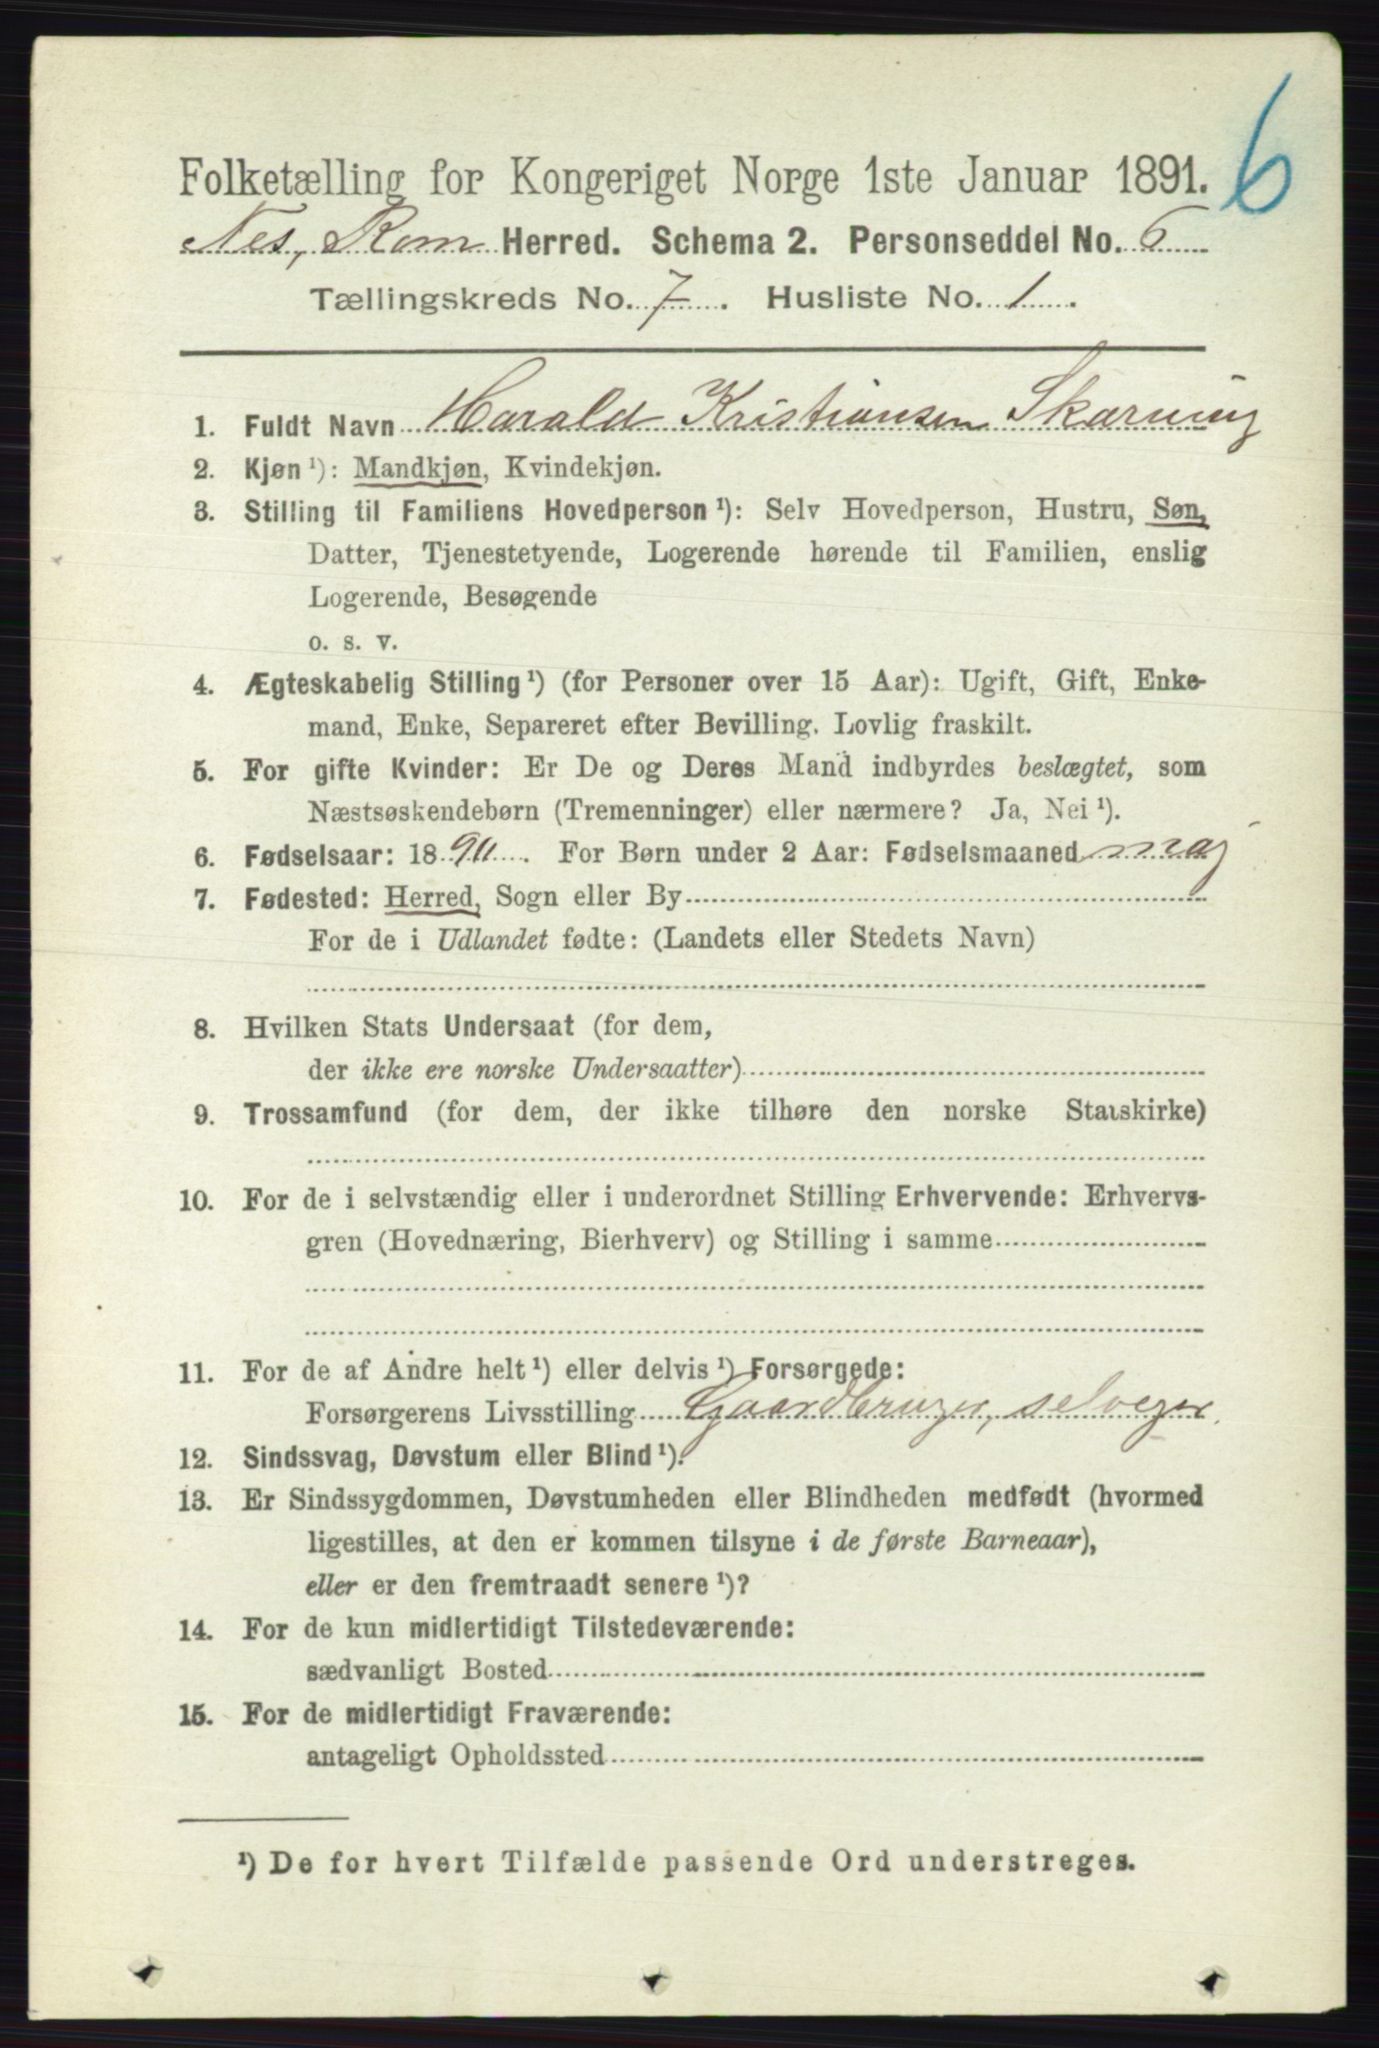 6
Folketælling for Kongeriget Norge 1ste Januar 1891.
Nes, Rom Herred. Schema 2. Personseddel No. 6
Tællingskreds No. 7. Husliste No. 1.
1. Fuldt Navn Harald Kristiansen Skarning
2. Kjøn ¹): Mandkjøn, Kvindekjøn.
3. Stilling til Familiens Hovedperson ¹): Selv Hovedperson, Hustru, Søn,
Datter, Tjenestetyende, Logerende hørende til Familien, enslig
Logerende, Besøgende
o. s. v.
4. Ægteskabelig Stilling ¹) (for Personer over 15 Aar): Ugift, Gift, Enke-
mand, Enke, Separeret efter Bevilling. Lovlig fraskilt.
5. For gifte Kvinder: Er De og Deres Mand indbyrdes beslægtet, som
Næstsøskendebørn (Tremenninger) eller nærmere? Ja, Nei ¹).
6. Fødselsaar: 18 90. For Børn under 2 Aar: Fødselsmaaned maj
7. Fødested: Herred, Sogn eller By
For de i Udlandet fødte: (Landets eller Stedets Navn)
8. Hvilken Stats Undersaat (for dem,
der ikke ere norske Undersaatter)
9. Trossamfund (for dem, der ikke tilhøre den norske Statskirke)
10. For de i selvstændig eller i underordnet Stilling Erhvervende: Erhvervs-
gren (Hovednæring, Bierhverv) og Stilling i samme
11. For de af Andre helt ¹) eller delvis ¹) Forsørgede:
Forsørgerens Livsstilling Gaardbruger, selveger.
12. Sindssvag, Døvstum eller Blind ¹).
13. Er Sindssygdommen, Døvstumheden eller Blindheden medfødt (hvormed
ligestilles, at den er kommen tilsyne i de første Barneaar),
eller er den fremtraadt senere ¹)?
14. For de kun midlertidigt Tilstedeværende:
sædvanligt Bosted
15. For de midlertidigt Fraværende:
antageligt Opholdssted
¹) De for hvert Tilfælde passende Ord understreges.